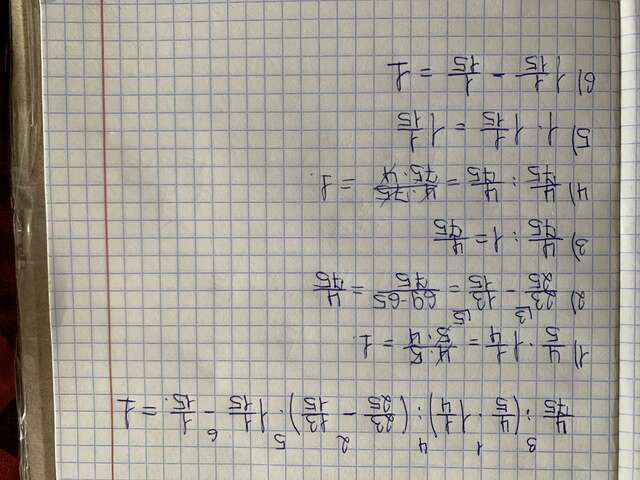 3 1 4 2 5 6
4/75 : (4/5 · 1 1/4) : (23/25 − 13/15) · 1 1/15 − 1/15 = 1
1) 4/5 · 1 1/4 = 4·5/5·4 = 1.
2) 23/25 − 13/15 = 69-65/75 = 4/75
3) 4/75 : 1 = 4/75
4) 4/75 : 4/75 = 4·75/75·4 = 1.
5) 1 · 1 1/15 = 1 1/15
6) 1 1/15 − 1/15 = 1